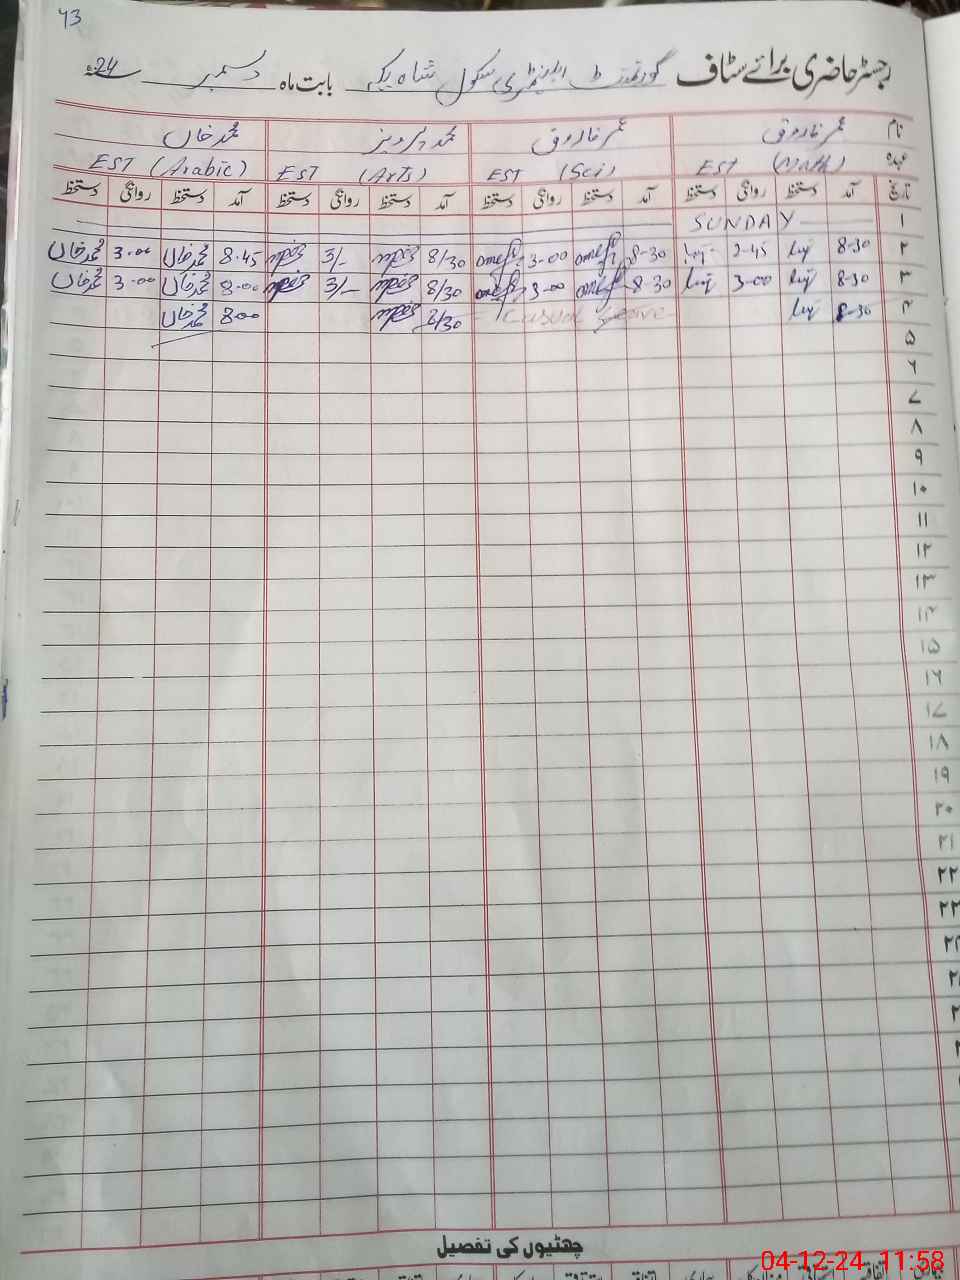 43
رجسٹر حاضری برائے سٹاف گورنمنٹ ایلیمنٹری سکول شاہ یکہ بابت ماہ دسمبر 24ء
نام عمر فاروق عمر فاروق محمد پرویز محمد خاں
عہدہ EST (Math) EST (Sci) EST (Arts) EST (Arabic)
تاریخ آمد دستخط روانگی دستخط آمد دستخط روانگی دستخط آمد دستخط روانگی دستخط آمد دستخط روانگی دستخط
۱ SUNDAY
۲ 8-30 2-45 8-30 3-00 8/30 3/- 8.45 محمد خاں 3.00 محمد خاں
۳ 8-30 3-00 8-30 3-00 8/30 3/- 8-00 محمد خاں 3-00 محمد خاں
۴ 8-30 Casual Leave 8/30 800 محمد خاں
۵
۶
۷
۸
۹
۱۰
۱۱
۱۲
۱۳
۱۴
۱۵
۱۶
۱۷
۱۸
۱۹
۲۰
۲۱
۲۲
۲۳
چھٹیوں کی تفصیل
04-12-24 11:58